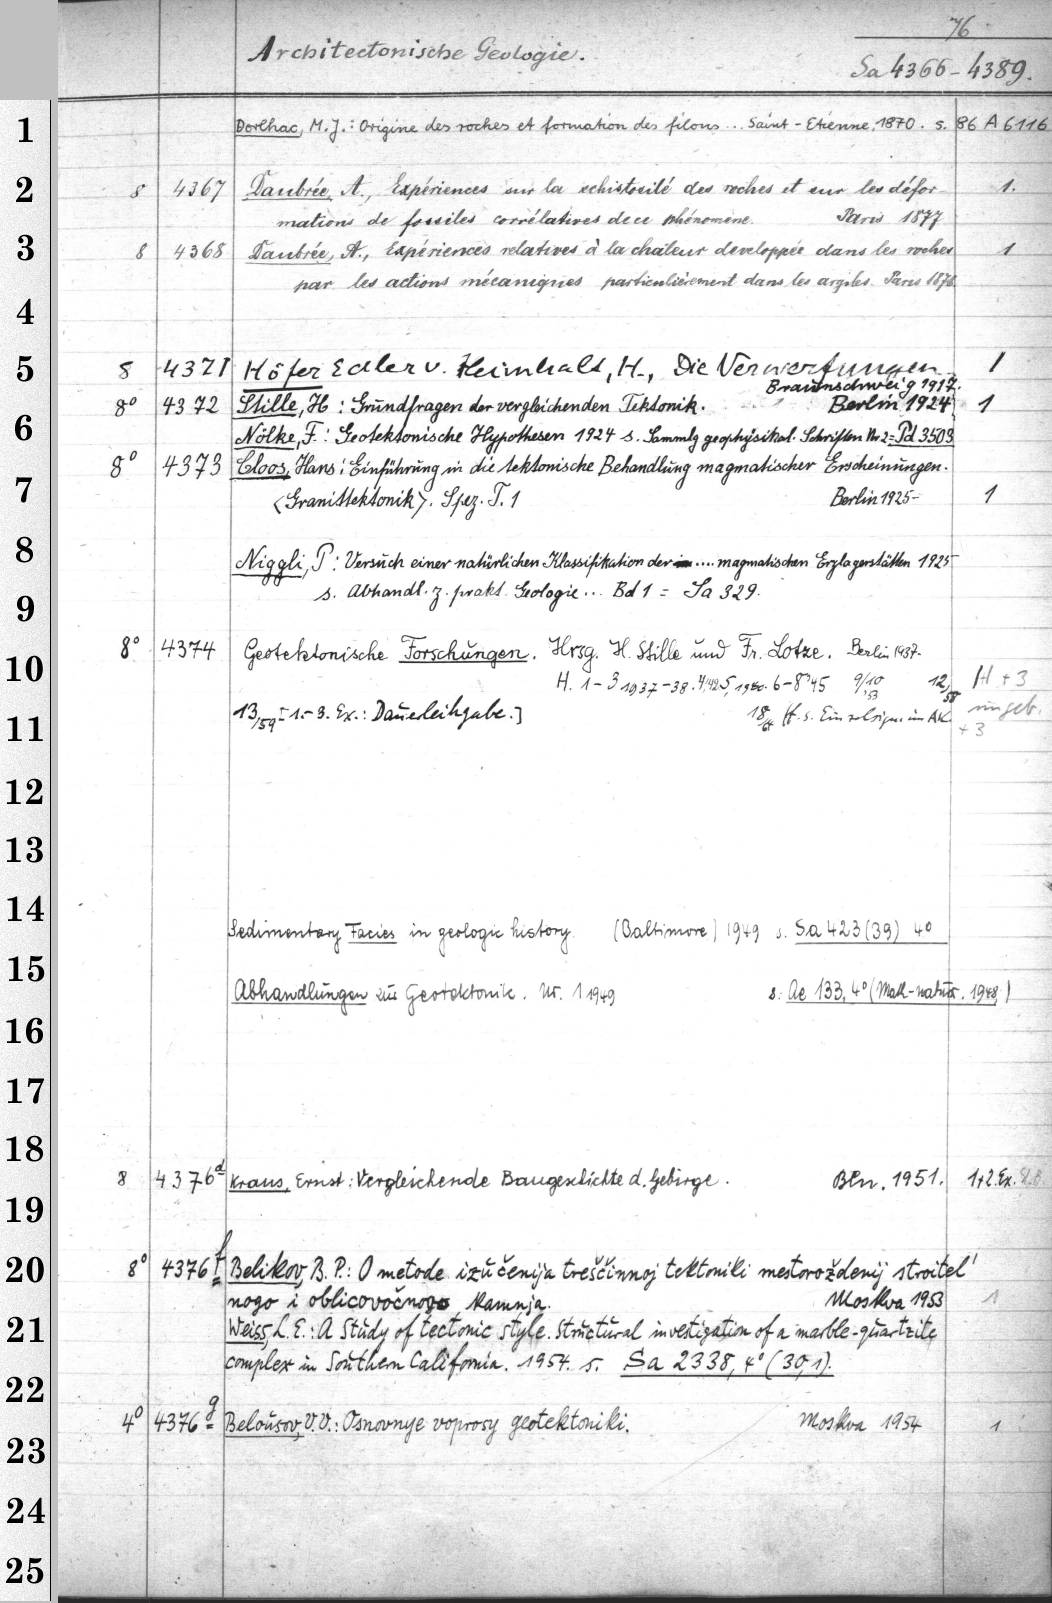 76
Architectonische Geologie.
Sa 4366-4389.
1 Dorlhac, M. J.: Origine des roches et formation des filons... Saint-Etienne, 1870. s. 86 A 6116
2 8 4367 Daubrée, A., Expériences sur la schistosité des roches et sur les défor- 1.
mations de fossiles corrélatives de ce phénomène. Paris 1877
3 8 4368 Daubrée, A., Expériences relatives à la chaleur developpée dans les roches 1
par les actions mécaniques particulièrement dans les argiles. Paris
4
5 8 4371 Höfer Edler v. Heimhalt, H., Die Verwerfungen 1
Braunschweig 1917.
8° 4372 Stille, H: Grundfragen der vergleichenden Tektonik. Berlin 1924 1
6 Nölke, F.: Geotektonische Hypothesen 1924 s. Sammlg geophysikal. Schriften Nr 2 = Pd 3503
8° 4373 Cloos, Hans: Einführung in die tektonische Behandlung magmatischer Erscheinungen.
7 <Granittektonik>. Spez. T. 1 Berlin 1925- 1
8 Niggli, P: Versuch einer natürlichen Klassifikation der .... magmatischen Erzlagerstätten 1925
9 s. Abhandl. z. prakt. Geologie... Bd 1 = Sa 329.
8° 4374 Geotektonische Forschungen. Hrsg. H. Stille und Fr. Lotze. Berlin 1937-
10 H. 1-3 1937-38. 6-8 45 9/10 53 12/58 H + 3
11 13/59 [1.-3. Ex.: Dauerleihgabe.] 18/64 H. s. im AK ungeb.
+ 3
12
13
14
Sedimentary Facies in geologic history (Baltimore) 1949 s. Sa 423 (39) 4°
15
Abhandlungen zur Geotektonik. Nr. 1 1949 s. Ae 133, 4° (Math-naturw. 1948,)
16
17
18
8 4376d Kraus, Ernst: Vergleichende Baugeschichte d. Gebirge. Bln. 1951. 1+2. Ex.
19
20 8° 4376f Belikov, B. P.: O metode izučenija treščinnoj tektoniki mestoroždenij stroitel'
nogo i oblicovočnogo kamnja. Moskva 1953 1
21 Weiss, L. E.: A Study of tectonic style. Structural investigation of a marble-quartzite
complex in Southern California. 1954. s. Sa 2338, 4° (30,1).
22
4° 4376g Belousov, V. V.: Osnovnye voprosy geotektoniki. Moskva 1954 1
23
24
25